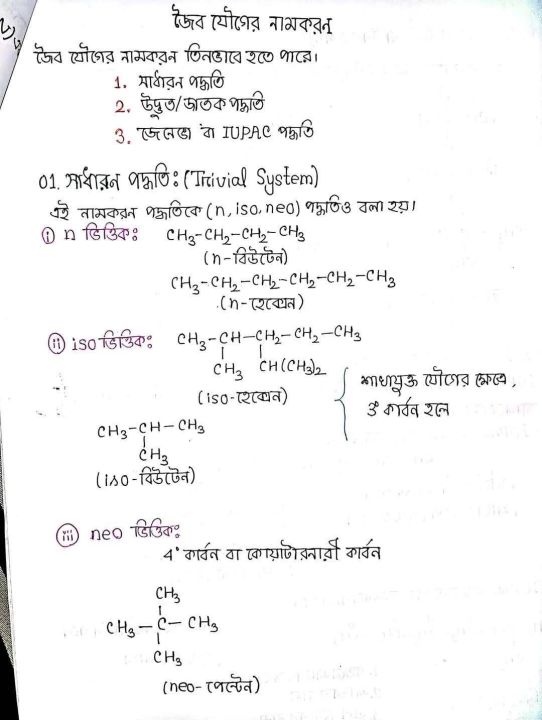 জৈব যৌগের নামকরন
জৈব যৌগের নামকরন তিনভাবে হতে পারে।
1. সাধারন পদ্ধতি
2. উদ্ভুত/জাতক পদ্ধতি
3. জেনেভা বা IUPAC পদ্ধতি
01. সাধারন পদ্ধতিঃ (Trivial System)
এই নামকরন পদ্ধতিকে (n, iso, neo) পদ্ধতিও বলা হয়।
(i) n ভিত্তিকঃ CH₃-CH₂-CH₂-CH₃
(n-বিউটেন)
CH₃-CH₂-CH₂-CH₂-CH₂-CH₃
(n-হেক্সেন)
(ii) iso ভিত্তিকঃ CH₃-CH-CH₂-CH₂-CH₃
CH₃ CH(CH₃)₂
(iso-হেক্সেন)
শাখাযুক্ত যৌগের ক্ষেত্রে,
3° কার্বন হলে
CH₃-CH-CH₃
CH₃
(iso-বিউটেন)
(iii) neo ভিত্তিকঃ
4° কার্বন বা কোয়াটারনারী কার্বন
CH₃
CH₃-C-CH₃
CH₃
(neo-পেন্টেন)